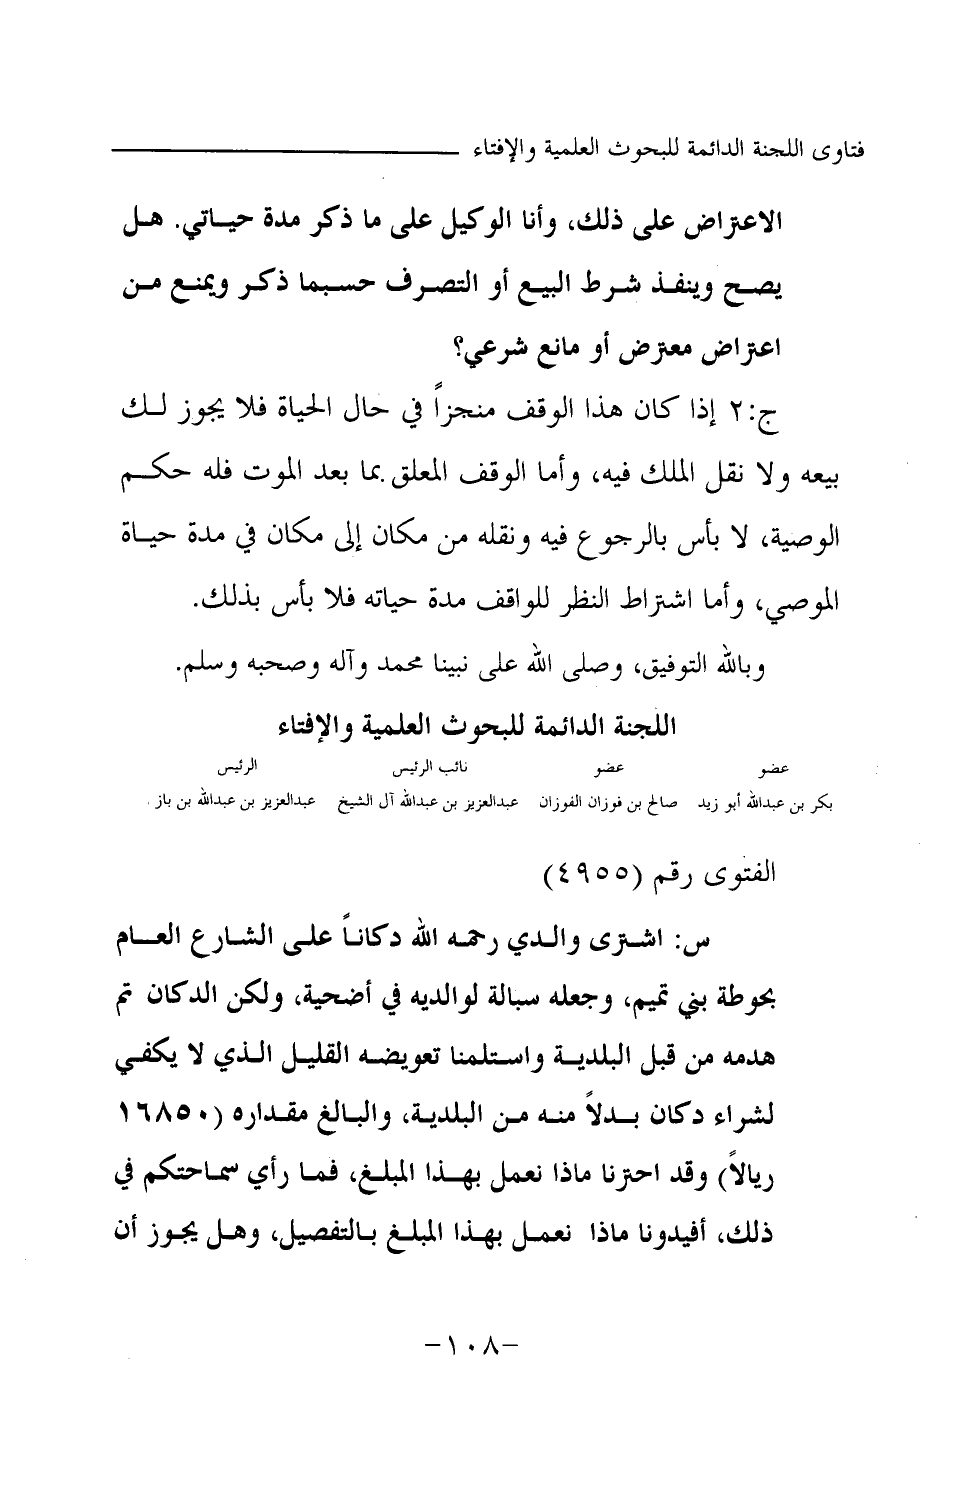 فتاوى اللجنة الدائمة للبحوث العلمية والإفتاء
الاعتراض على ذلك، وأنا الوكيل على ما ذكر مدة حياتي. هل
يصح وينفذ شرط البيع أو التصرف حسبما ذكر ويمنع من
اعتراض معترض أو مانع شرعي؟
ج:٢ إذا كان هذا الوقف منجزاً في حال الحياة فلا يجوز لك
بيعه ولا نقل الملك فيه، وأما الوقف المعلق بما بعد الموت فله حكم
الوصية، لا بأس بالرجوع فيه ونقله من مكان إلى مكان في مدة حياة
الموصي، وأما اشتراط النظر للواقف مدة حياته فلا بأس بذلك.
وبالله التوفيق، وصلى الله على نبينا محمد وآله وصحبه وسلم.
اللجنة الدائمة للبحوث العلمية والإفتاء
عضو عضو نائب الرئيس الرئيس
بكر بن عبدالله أبو زيد صالح بن فوزان الفوزان عبدالعزيز بن عبدالله آل الشيخ عبدالعزيز بن عبدالله بن باز
الفتوى رقم (٤٩٥٥)
س: اشترى والدي رحمه الله دكاناً على الشارع العام
بحوطة بني تميم، وجعله سبالة لوالديه في أضحية، ولكن الدكان تم
هدمه من قبل البلدية واستلمنا تعويضه القليل الذي لا يكفي
لشراء دكان بدلاً منه من البلدية، والبالغ مقداره (١٦٨٥٠
ريالاً) وقد احترنا ماذا نعمل بهذا المبلغ، فما رأي سماحتكم في
ذلك، أفيدونا ماذا نعمل بهذا المبلغ بالتفصيل، وهل يجوز أن
-١٠٨-